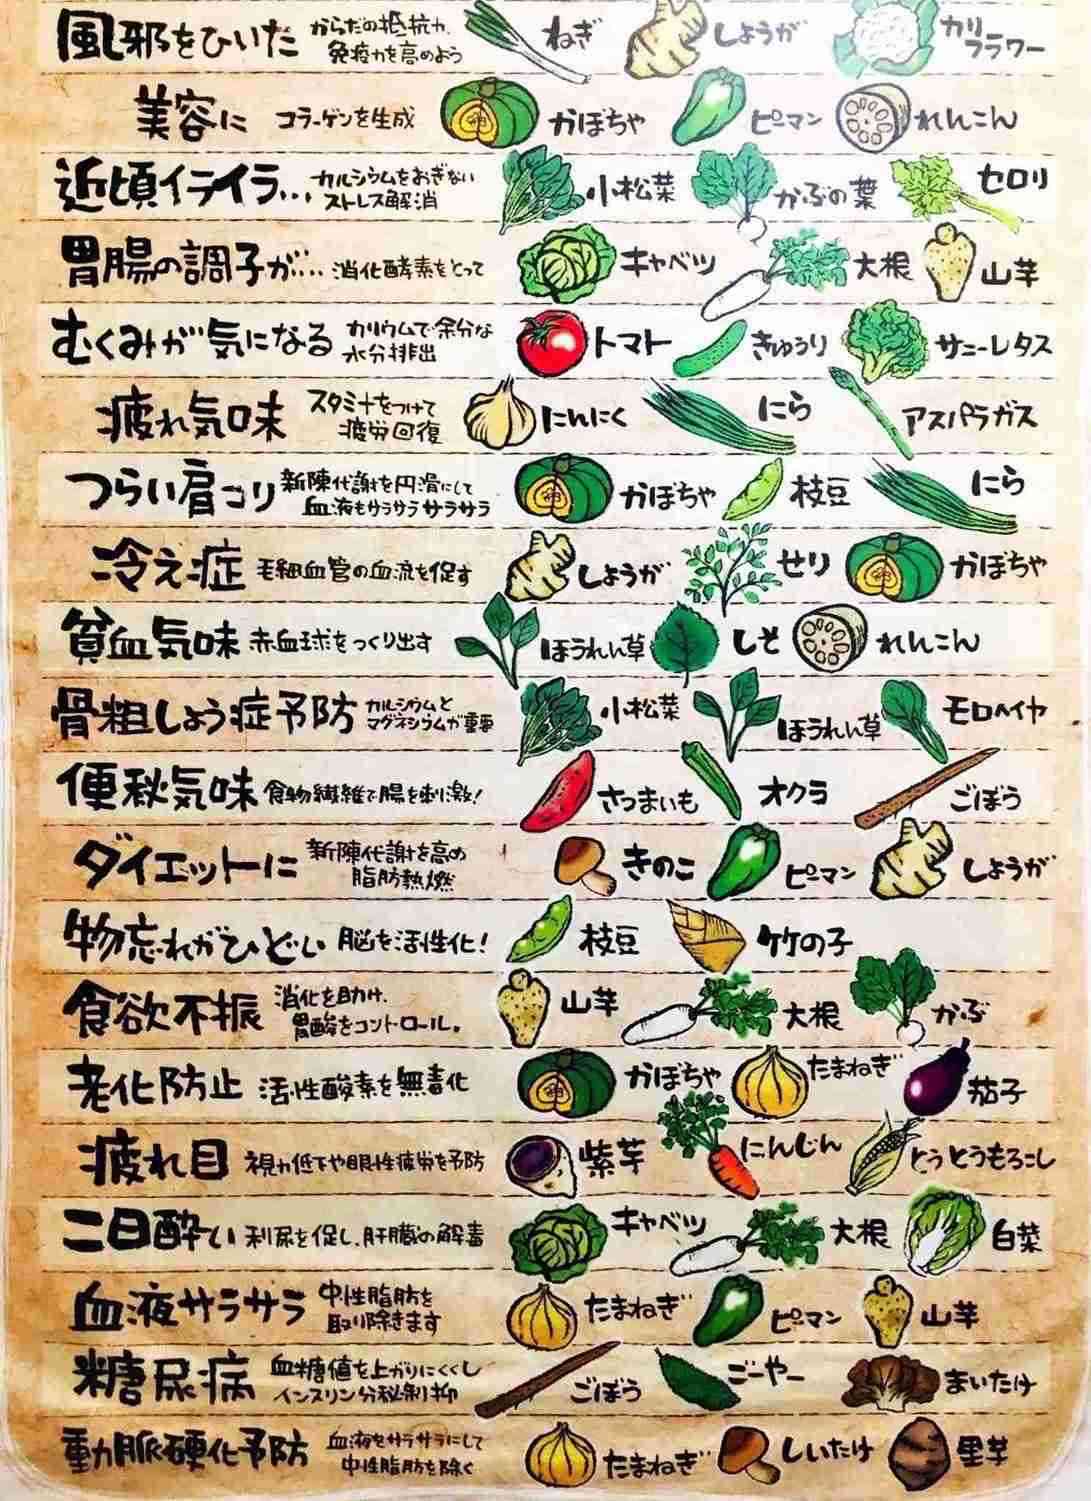 風邪をひいた からだの抵抗力、 ねぎ しょうが カリフラワー
免疫力を高めよう
美容に コラーゲンを生成 かぼちゃ ピーマン れんこん
近頃イライラ… カルシウムをおぎない 小松菜 かぶの葉 セロリ
ストレス解消
胃腸の調子が… 消化酵素をとって キャベツ 大根 山芋
むくみが気になる カリウムで余分な トマト きゅうり サニーレタス
水分排出
疲れ気味 スタミナをつけて にんにく にら アスパラガス
疲労回復
つらい肩コリ 新陳代謝を円滑にして かぼちゃ 枝豆 にら
血液もサラサラサラサラ
冷え症 毛細血管の血流を促す しょうが せり かぼちゃ
貧血気味 赤血球をつくり出す ほうれん草 しそ れんこん
骨粗しょう症予防 カルシウムと 小松菜 ほうれん草 モロヘイヤ
マグネシウムが重要
便秘気味 食物繊維で腸を刺激! さつまいも オクラ ごぼう
ダイエットに 新陳代謝を高め きのこ ピーマン しょうが
脂肪熱燃
物忘れがひどい 脳を活性化! 枝豆 竹の子
食欲不振 消化を助け、 山芋 大根 かぶ
胃酸をコントロール。
老化防止 活性酸素を無毒化 かぼちゃ たまねぎ 茄子
疲れ目 視力低下や眼性疲労を予防 紫芋 にんじん とうとうもろこし
二日酔い 利尿を促し、肝臓の解毒 キャベツ 大根 白菜
血液サラサラ 中性脂肪を たまねぎ ピーマン 山芋
取り除きます
糖尿病 血糖値を上がりにくくし ごぼう ごーやー まいたけ
インスリン分秘制抑
動脈硬化予防 血液をサラサラにして たまねぎ しいたけ 里芋
中性脂肪を除く